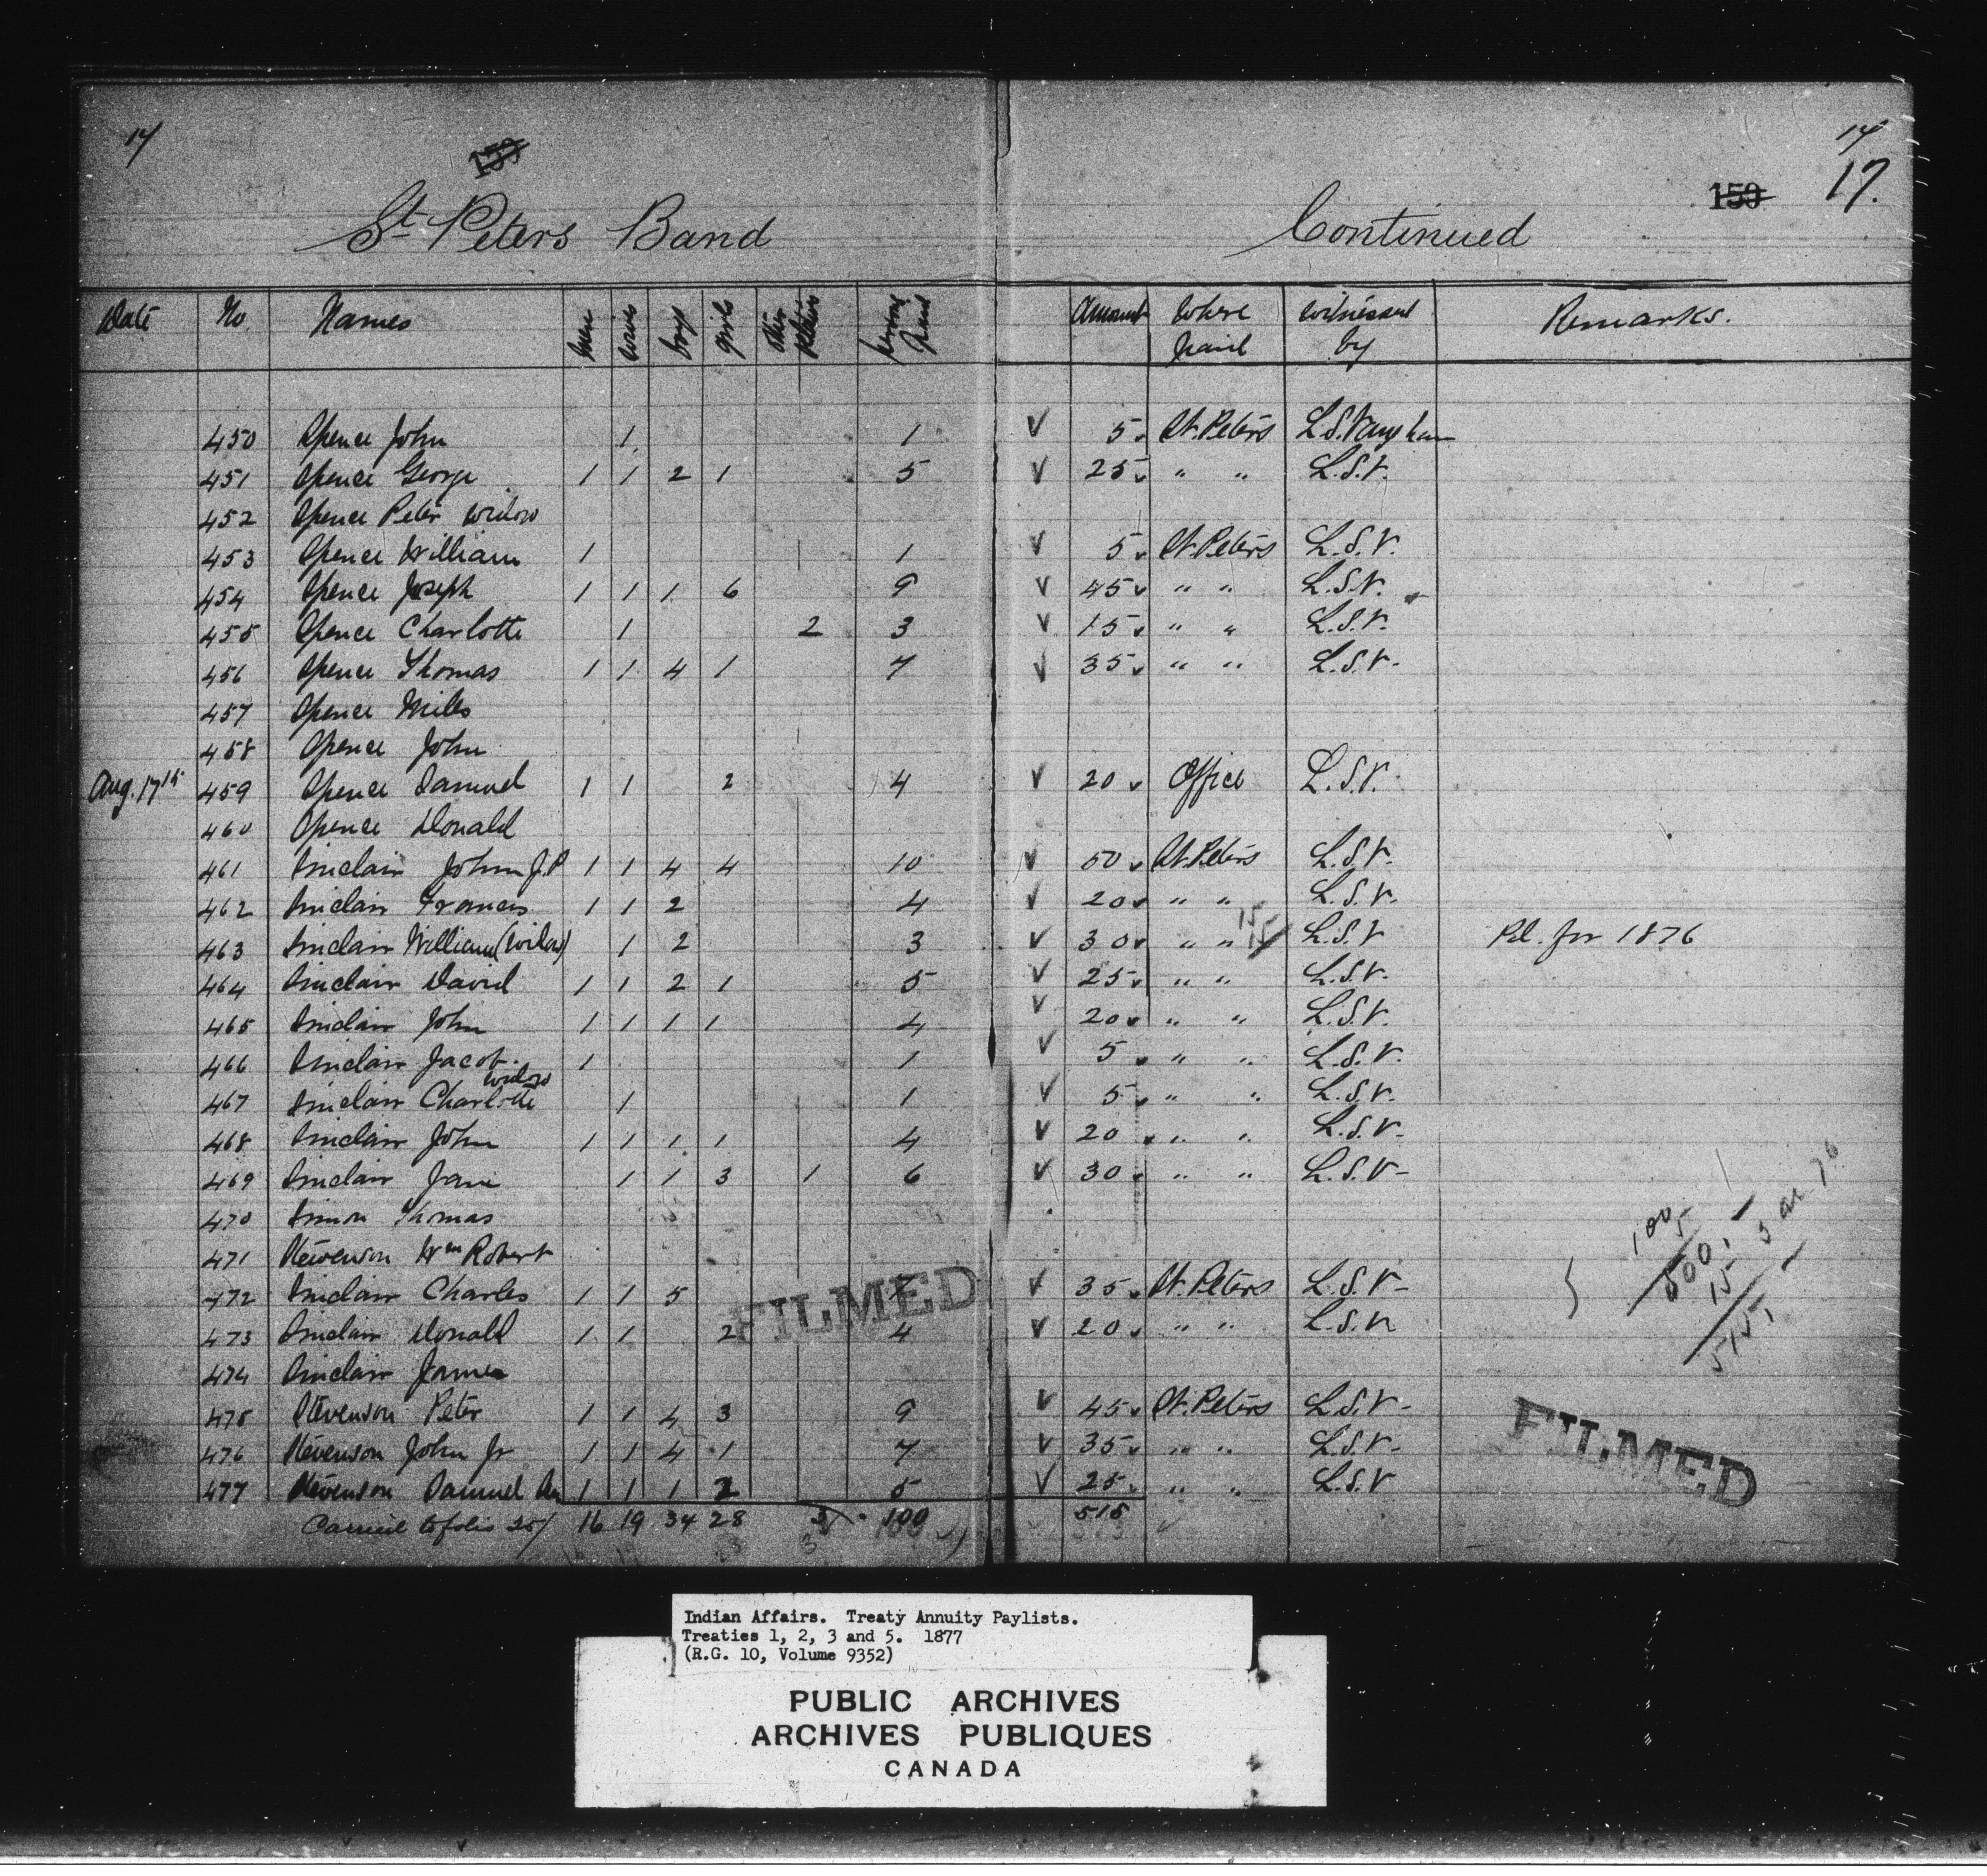 17 17
159 159 17.
St. Peters Band Continued
Date No. Names Men Wives boys girls Other Relatives persons paid Amount Where paid Witnessed by Remarks.
450 Spence John 1 1 √ 5 St. Peters L.S. Vaughan
451 Spence George 1 1 2 1 5 √ 25 " " L.S.V.
452 Spence Peter Widow
453 Spence William 1 1 √ 5 St. Peters L.S.V.
454 Spence Joseph 1 1 1 6 9 √ 45 " " L.S.V.
455 Spence Charlotte 1 2 3 √ 15 " " L.S.V.
456 Spence Thomas 1 1 4 1 7 √ 35 " " L.S.V.
457 Spence Miles
458 Spence John
Aug. 17th 459 Spence Samuel 1 1 2 4 √ 20 Office L.S.V.
460 Spence Donald
461 Sinclair John J.P 1 1 4 4 10 √ 50 St. Peters L.S.V.
462 Sinclair Francis 1 1 2 4 √ 20 " " L.S.V.
463 Sinclair William (Widow) 1 2 3 √ 30 " " 15 15 L.S.V Pd. for 1876
464 Sinclair David 1 1 2 1 5 √ 25 " " L.S.V.
465 Sinclair John 1 1 1 1 4 √ 20 " " L.S.V.
466 Sinclair Jacob 1 1 √ 5 " " L.S.V.
467 Sinclair Charlotte widow 1 1 √ 5 " " L.S.V.
468 Sinclair John 1 1 1 1 4 √ 20 " " L.S.V.
469 Sinclair Jane 1 1 3 1 6 √ 30 " " L.S.V
470 Simon Thomas
471 Stevenson Wm Robert
472 Sinclair Charles 1 1 5 7 √ 35 St. Peters L.S.V
473 Sinclair Donald 1 1 2 4 √ 20 " " L.S.V
474 Sinclair James
475 Stevenson Peter 1 1 4 3 9 √ 45 St. Peters L.S.V
476 Stevenson John Jr 1 1 4 1 7 √ 35 " " L.S.V
477 Stevenson Samuel 1 1 1 2 5 √ 25 " " L.S.V
Carried to folio 25 16 19 34 28 3 100 515
100
5
500
15 3 at 76
515
FILMED
FILMED
Indian Affairs. Treaty Annuity Paylists.
Treaties 1, 2, 3 and 5. 1877
(R.G. 10, Volume 9352)
PUBLIC ARCHIVES
ARCHIVES PUBLIQUES
CANADA